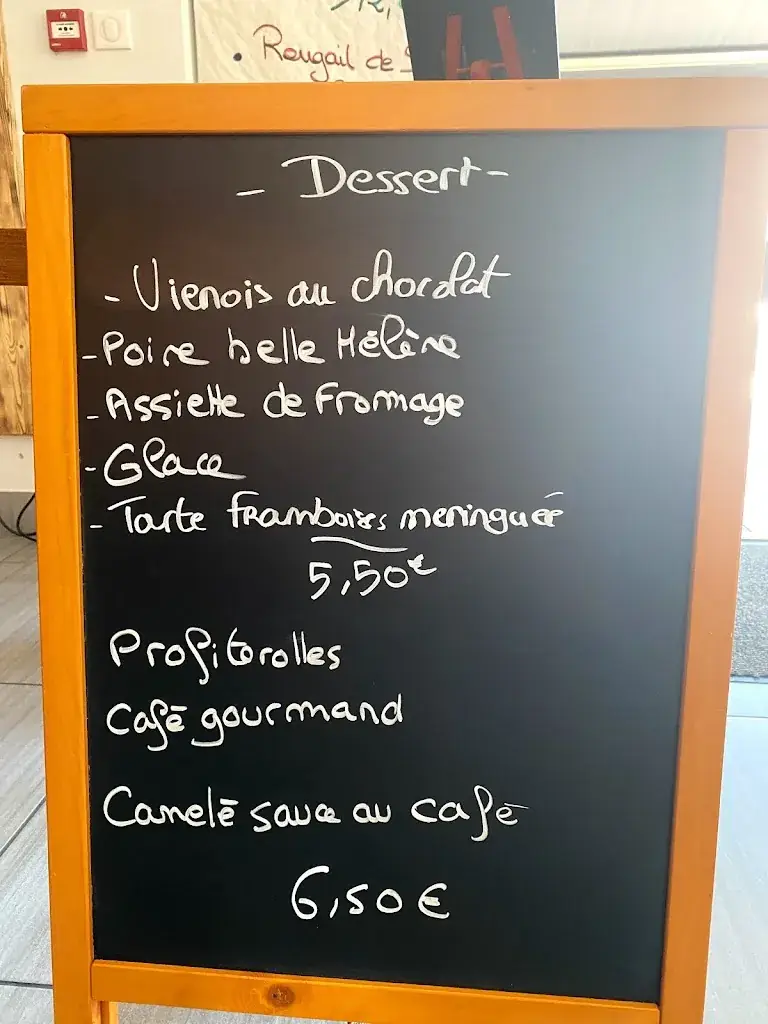 12,
• Rougail de
- Dessert -
- Vienois au chocolat
- Poire belle Hélène
- Assiette de Fromage
- Glace
- Tarte framboises meringuée
5,50€
Profiterolles
Café gourmand
Canelé sauce au café
6,50€